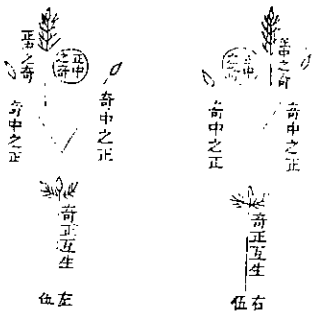 正中之奇
正中之奇
奇中之正
奇中之正
奇正互生
右伍
正中之奇
正中之奇
奇中之正
奇中之正
奇正互生
左伍